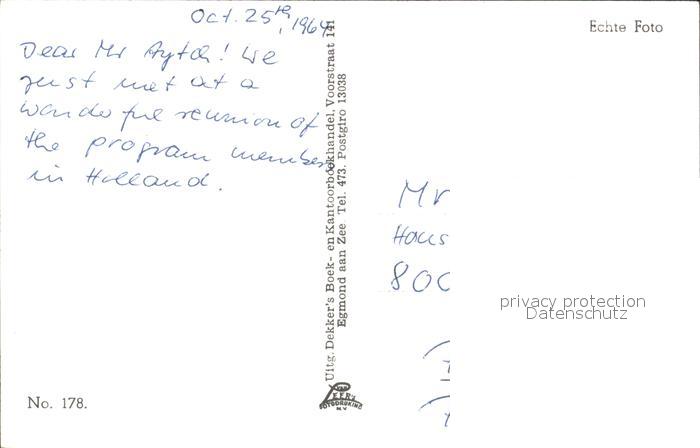 Oct. 25th, 1964
Dear Mr Aytch! We
just met at a
wonderful reunion of
the program members
in Holland.
No. 178.
Uitg. Dekker's Boek- en Kantoorboekhandel, Voorstraat 141
Egmond aan Zee Tel. 473. Postgiro 13038
VAN LEER'S
FOTODRUKIND.
N.V.
Echte Foto
Mr
Haus
800
privacy protection
Datenschutz